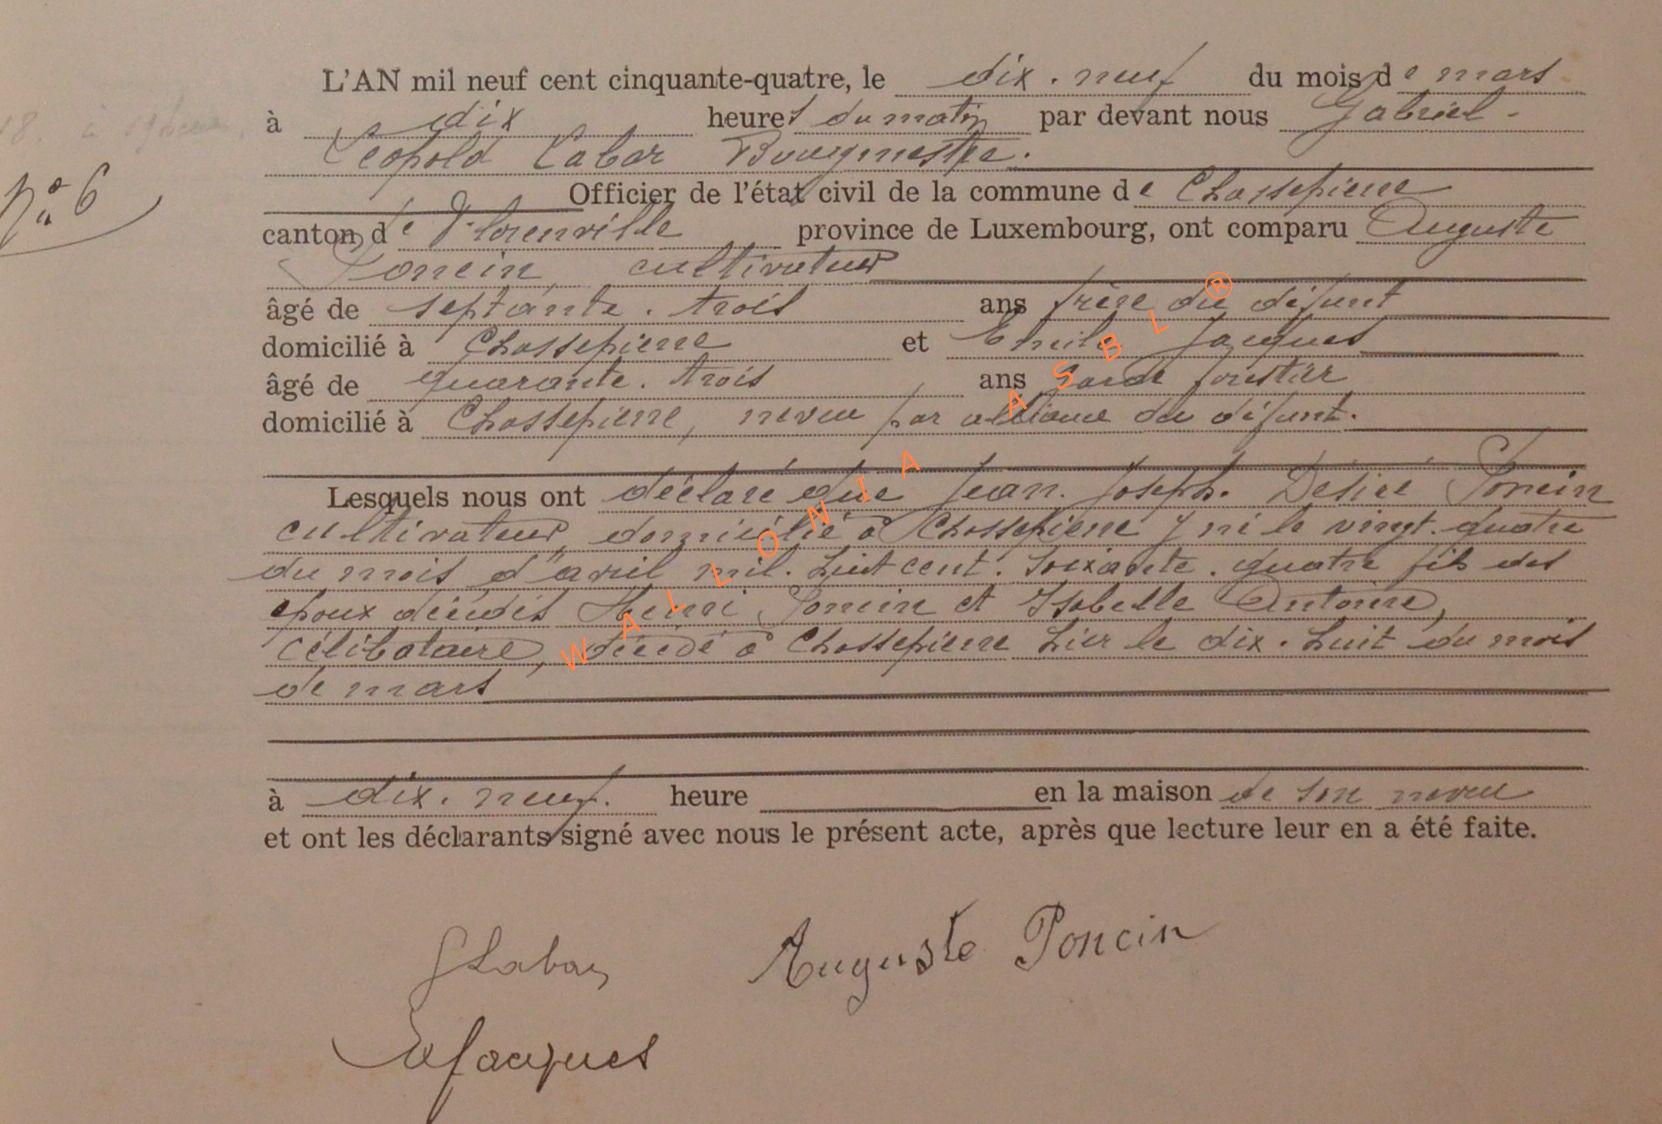 L'AN mil neuf cent cinquante-quatre, le dix-neuf du mois de mars
à dix heures du matin par devant nous Gabriel-
Léopold Labar Bourgmestre.
N° 6
Officier de l'état civil de la commune de Chassepierre
canton de Florenville province de Luxembourg, ont comparu Auguste
Poncin, cultivateur
âgé de septante-trois ans frère du défunt
domicilié à Chassepierre et Emile Jacques
âgé de quarante-trois ans garde forestier
domicilié à Chassepierre, neveu par alliance du défunt.
Lesquels nous ont déclaré que Jean-Joseph-Désiré Poncin
cultivateur, domicilié à Chassepierre y né le vingt-quatre
du mois d'avril mil-huit cent-soixante-quatre fils des
époux décédés Henri Poncin et Isabelle Antoine,
célibataire, décédé à Chassepierre hier le dix-huit du mois
de mars
à dix-neuf. heure en la maison de son neveu
et ont les déclarants signé avec nous le présent acte, après que lecture leur en a été faite.
GLabar
Auguste Poncin
EJacques
WALLONIA ASBL ®